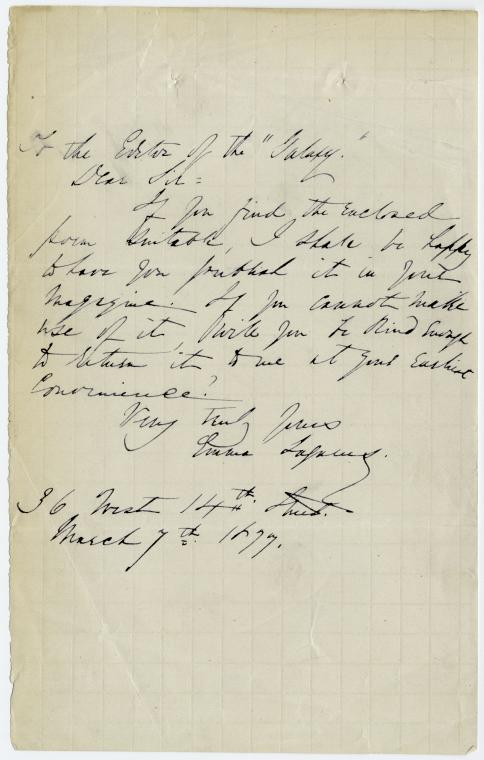 To the Editor of the "Galaxy."
Dear Sir =
If you find the enclosed
poem suitable, I shall be happy
to have you publish it in your
Magazine. If you cannot make
use of it will you be kind enough
to return it to me at your earliest
convenience?
Very truly yours
Emma Lazarus.
36 West 14th. Street.
March 7th. 1877.